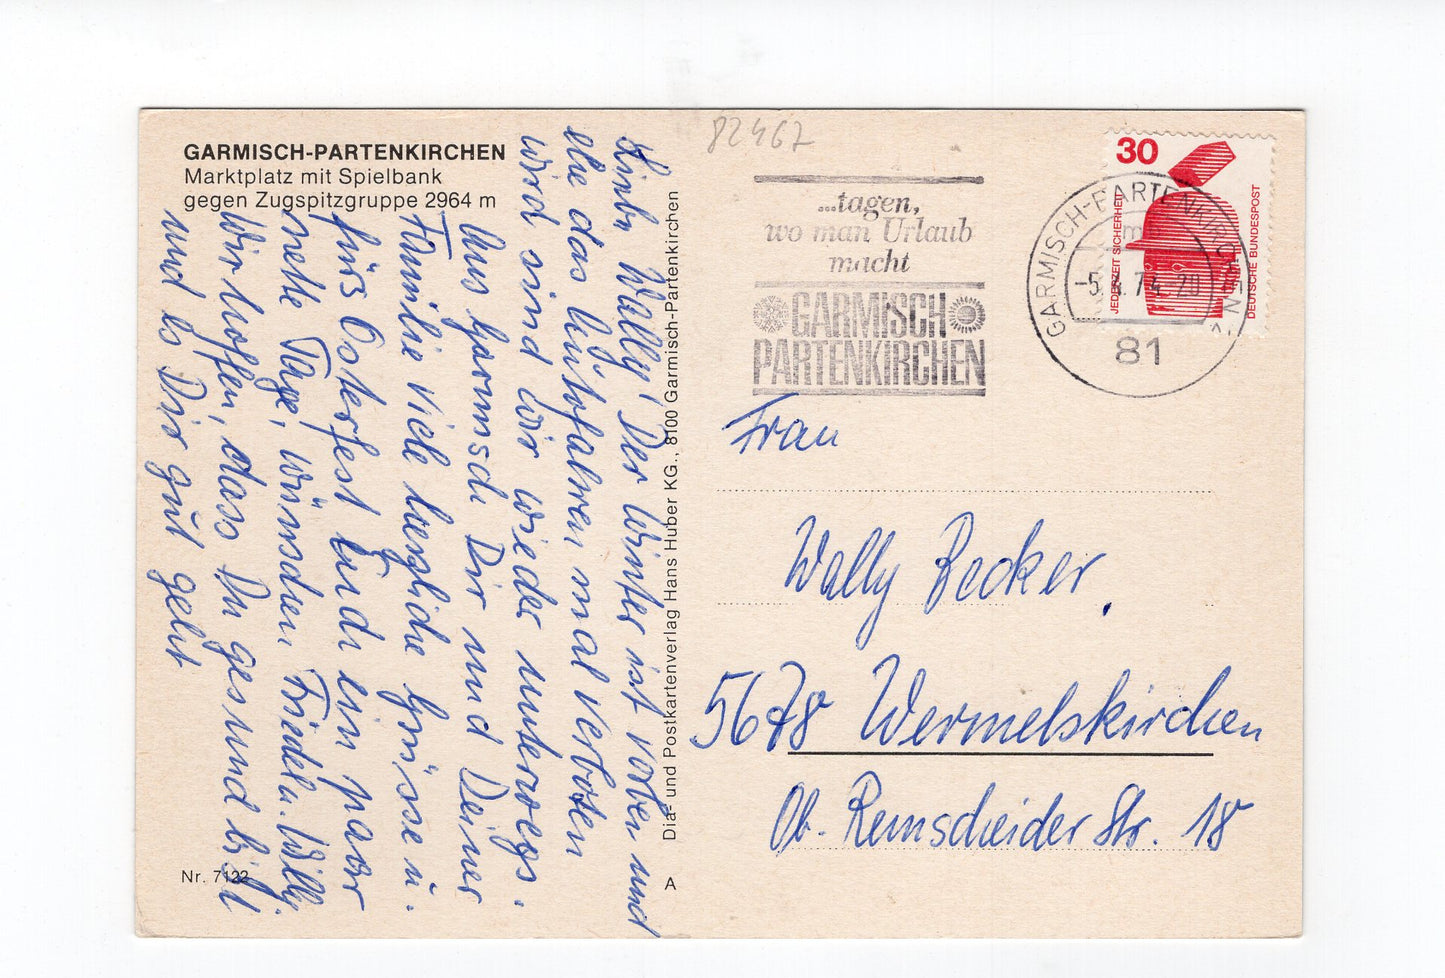 GARMISCH-PARTENKIRCHEN
Marktplatz mit Spielbank
gegen Zugspitzgruppe 2964 m
Liebe Wally! Der Winter ist vorbei und
ehe das Autofahren mal verboten
wird sind wir wieder unterwegs.
Aus Garmisch Dir und Deiner
Familie viele herzliche Grüsse u.
fürs Osterfest Euch ein paar
nette Tage, wünschen Friedel u. Willi
Wir hoffen, dass Du gesund bist
und es Dir gut geht
Nr. 7122
Dia- und Postkartenverlag Hans Huber KG., 8100 Garmisch-Partenkirchen
A
82467
...tagen,
wo man Urlaub
macht
GARMISCH
PARTENKIRCHEN
GARMISCH-PARTENKIRCHEN 1
-5.4.74-20
81
30
JEDERZEIT SICHERHEIT
DEUTSCHE BUNDESPOST
Frau
Wally Becker
5678 Wermelskirchen
Ob. Remscheider Str. 18